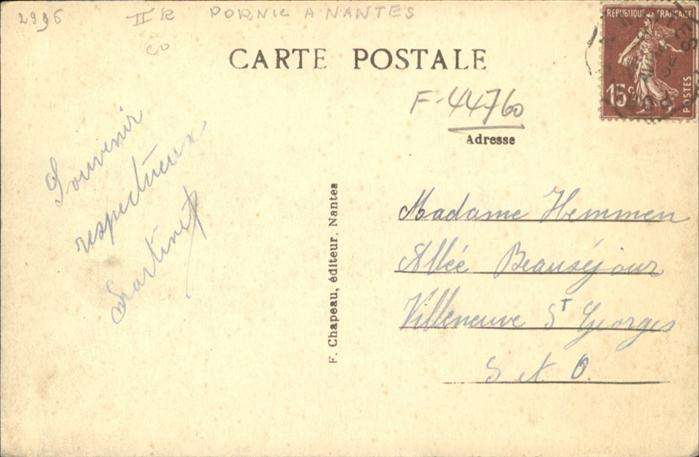 2996 II R PORNIC A NANTES
CO
CARTE POSTALE
REPUBLIQUE FRANÇAISE
15c
POSTES
F-44760
Adresse
Souvenir
respectueux
F. Chapeau, éditeur, Nantes
Madame Hemmen
Allée Beauséjour
Villeneuve St Georges
S et O